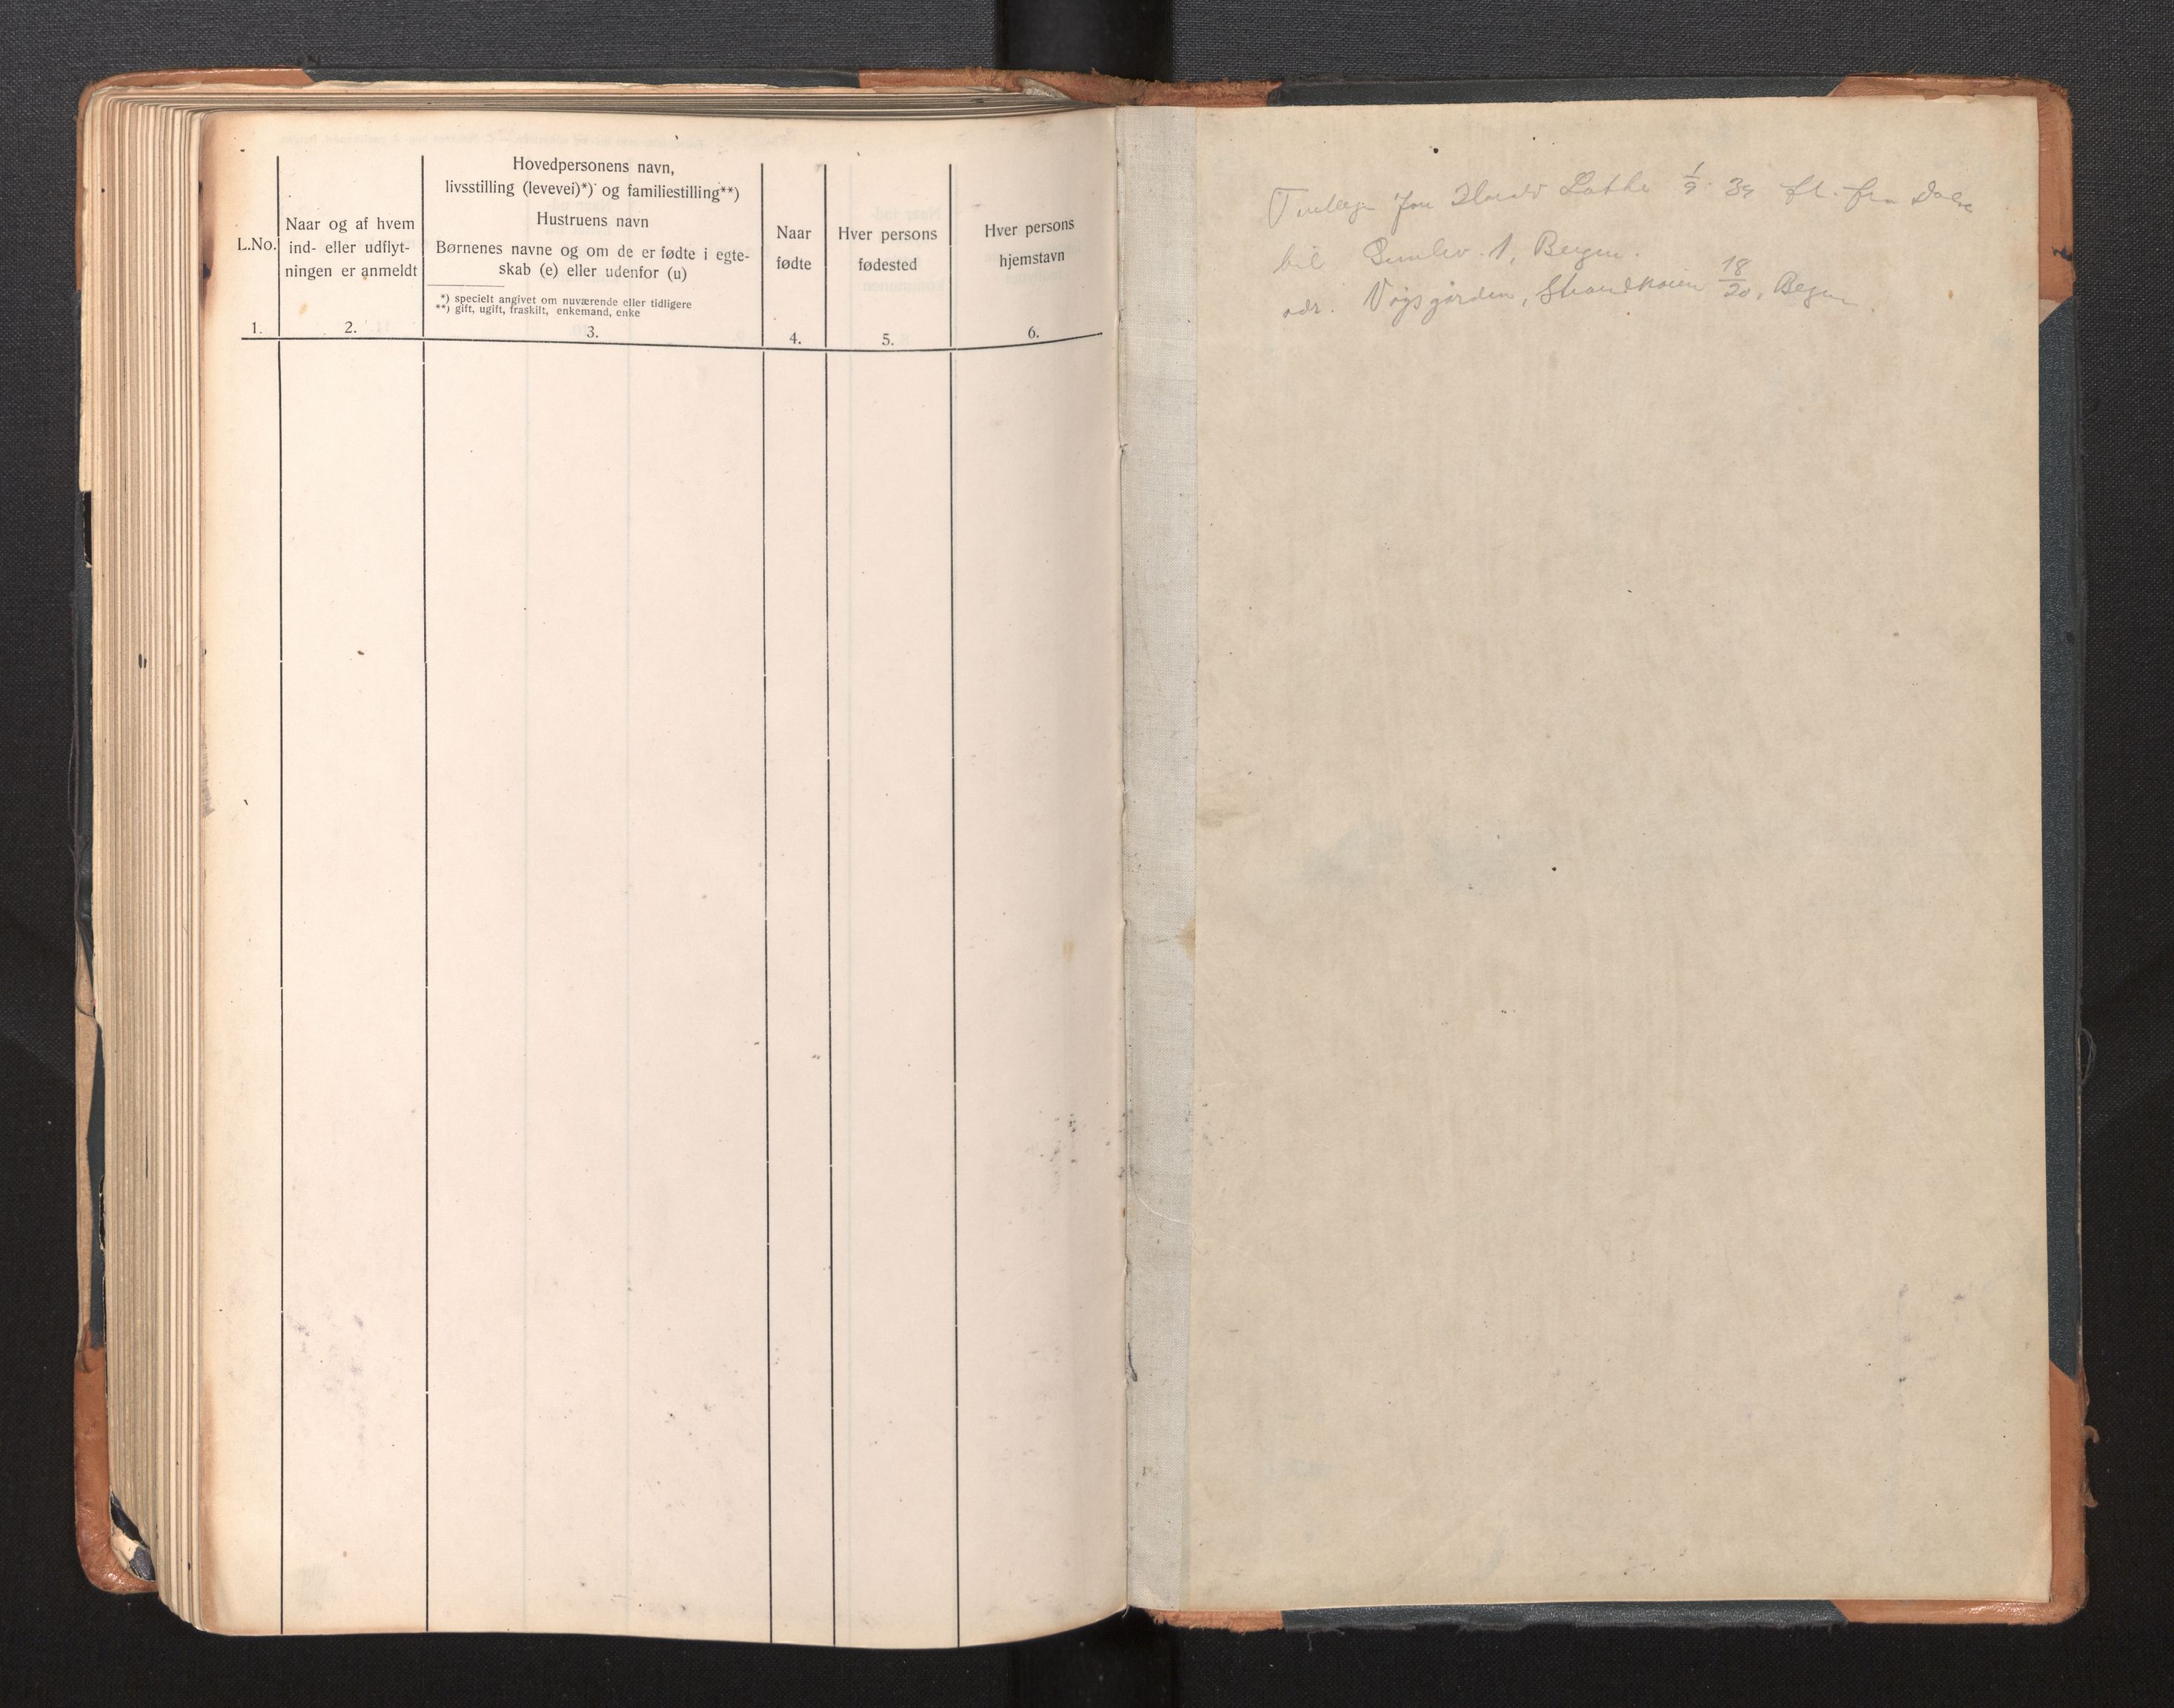 L.No.
1.
Naar og af hvem
ind- eller udflyt-
ningen er anmeldt
2.
Hovedpersonens navn,
livsstilling (levevei)*) og familiestilling**)
Hustruens navn
Børnenes navne og om de er fødte i egte-
skab (e) eller udenfor (u)
*) specielt angivet om nuværende eller tidligere
**) gift, ugift, fraskilt, enkemand, enke
3.
Naar
fødte
4.
Hver persons
fødested
5.
Hver persons
hjemstavn
6.
1/9 39 fl. fra
1, Bergen.
adr. Vågsgården, Strandkaien 18/20, Bergen.